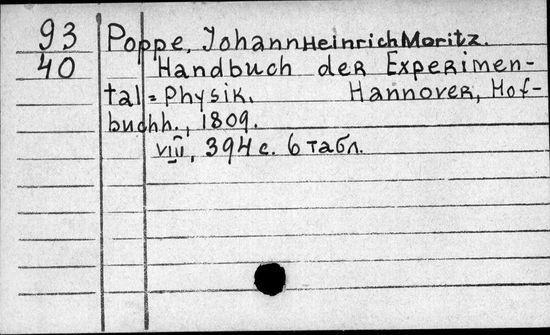 93 Poppe, Johann Heinrich Moritz.
40 Handbuch der Experimen-
tal=Physik. Hannover, Hof-
buchh., 1809.
VIII, 394 с. 6 табл.